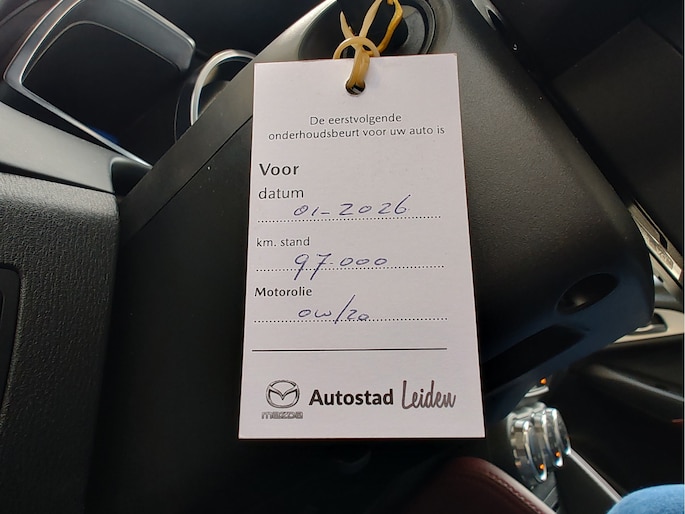 De eerstvolgende
onderhoudsbeurt voor uw auto is
Voor
datum
01-2026
km. stand
97.000
Motorolie
0w/20
mazda
Autostad Leiden